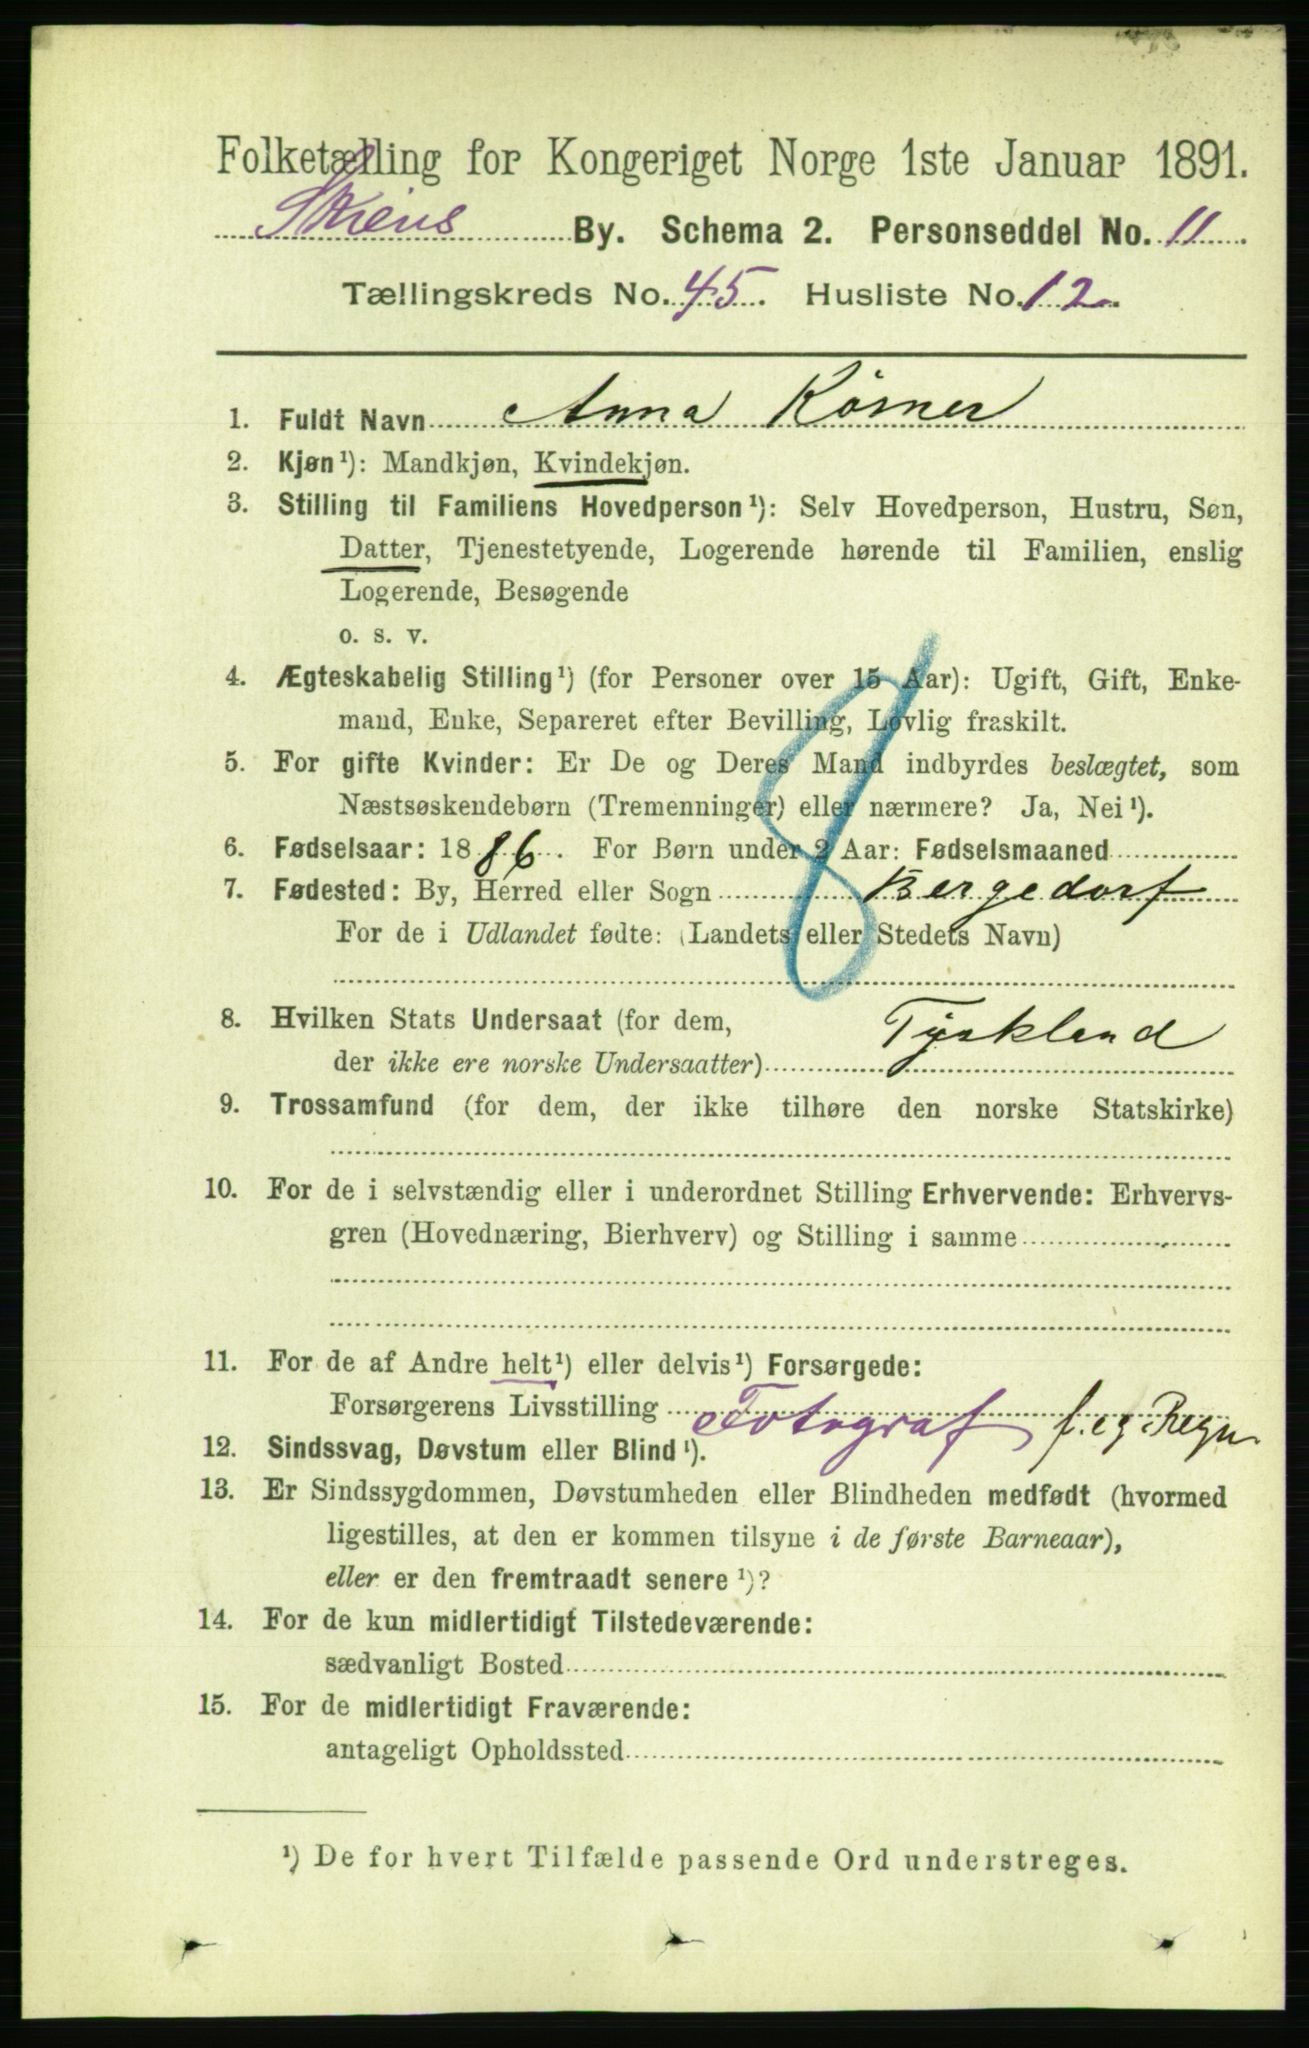 Folketælling for Kongeriget Norge 1ste Januar 1891.
Skiens By. Schema 2. Personseddel No. 11.
Tællingskreds No. 45. Husliste No. 12.
1. Fuldt Navn Anna Körner
2. Kjøn¹): Mandkjøn, Kvindekjøn.
3. Stilling til Familiens Hovedperson¹): Selv Hovedperson, Hustru, Søn,
Datter, Tjenestetyende, Logerende hørende til Familien, enslig
Logerende, Besøgende
o. s. v.
4. Ægteskabelig Stilling¹) (for Personer over 15 Aar): Ugift, Gift, Enke-
mand, Enke, Separeret efter Bevilling, Lovlig fraskilt.
5. For gifte Kvinder: Er De og Deres Mand indbyrdes beslægtet, som
Næstsøskendebørn (Tremenninger) eller nærmere? Ja, Nei¹).
6. Fødselsaar: 1886. For Børn under 2 Aar: Fødselsmaaned
7. Fødested: By, Herred eller Sogn Bergedorf
For de i Udlandet fødte: (Landets eller Stedets Navn)
8. Hvilken Stats Undersaat (for dem, Tyskland
der ikke ere norske Undersaatter)
9. Trossamfund (for dem, der ikke tilhøre den norske Statskirke)
10. For de i selvstændig eller i underordnet Stilling Erhvervende: Erhvervs-
gren (Hovednæring, Bierhverv) og Stilling i samme
11. For de af Andre helt¹) eller delvis¹) Forsørgede:
Forsørgerens Livsstilling Fotograf f. eg Regn.
12. Sindssvag, Døvstum eller Blind¹).
13. Er Sindssygdommen, Døvstumheden eller Blindheden medfødt (hvormed
ligestilles, at den er kommen tilsyne i de første Barneaar),
eller er den fremtraadt senere¹)?
14. For de kun midlertidigt Tilstedeværende:
sædvanligt Bosted
15. For de midlertidigt Fraværende:
antageligt Opholdssted
¹) De for hvert Tilfælde passende Ord understreges.